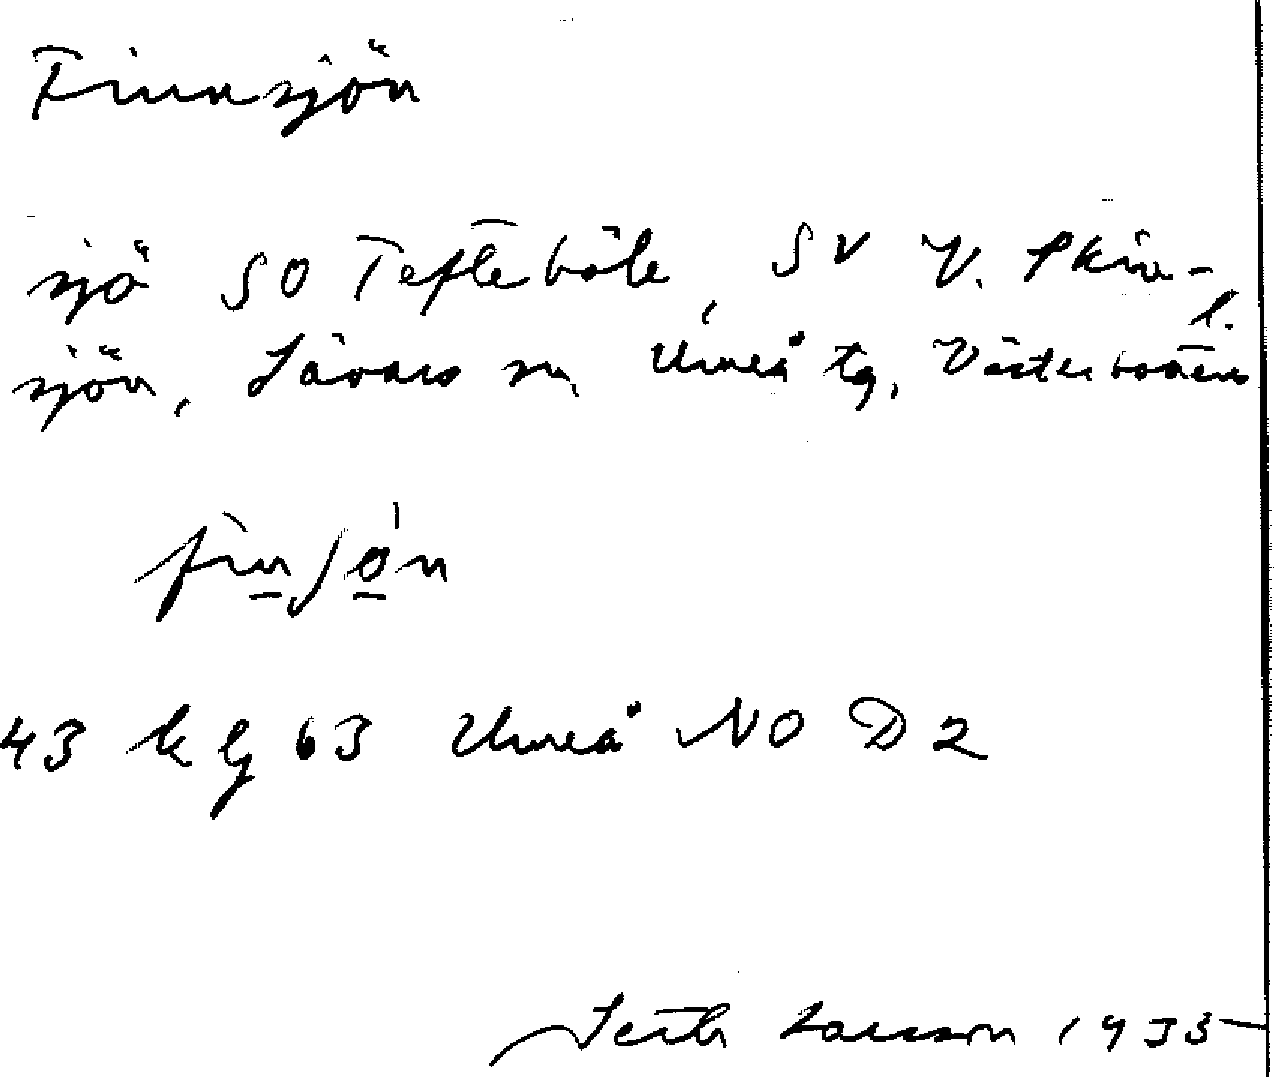 Finnsjön
sjö SO Tefteböle, SV V. Skin-
sjön, Sävars sn, Umeå tg, Västerbottens l.
43 kg 63 Umeå NO D 2
Seth Larsson 1935